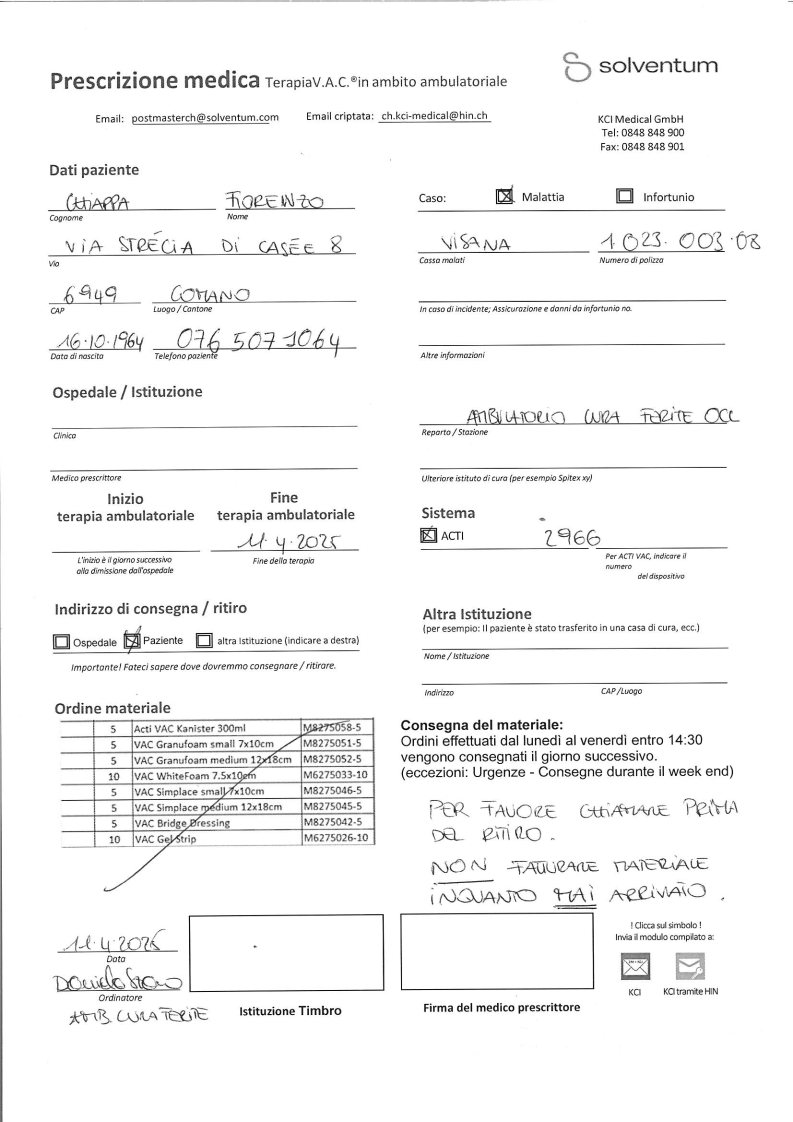 solventum
Prescrizione medica TerapiaV.A.C.®in ambito ambulatoriale
Email: postmasterch@solventum.com Email criptata: ch.kci-medical@hin.ch
KCI Medical GmbH
Tel: 0848 848 900
Fax: 0848 848 901
Dati paziente
CHIAPPA FIORENZO
Cognome Nome
VIA STRECIA DI CASÉE 8
Via
6949 COMANO
CAP Luogo / Cantone
16.10.1964 076 507 1064
Data di nascita Telefono paziente
Caso: Malattia Infortunio
VISANA 1.023.003.08
Cassa malati Numero di polizza
In caso di incidente; Assicurazione e danni da infortunio no.
Altre informazioni
Ospedale / Istituzione
Clinica
Medico prescrittore
AMBULATORIO CURA FERITE OCL
Reparto / Stazione
Ulteriore istituto di cura (per esempio Spitex xy)
Inizio terapia ambulatoriale
Fine terapia ambulatoriale
11.4.2025
L'inizio è il giorno successivo
alla dimissione dall'ospedale
Fine della terapia
Sistema
ACTI 2966
Per ACTI VAC, indicare il
numero
del dispositivo
Indirizzo di consegna / ritiro
Ospedale Paziente altra Istituzione (indicare a destra)
Importante! Fateci sapere dove dovremmo consegnare / ritirare.
Altra Istituzione
(per esempio: Il paziente è stato trasferito in una casa di cura, ecc.)
Nome / Istituzione
Indirizzo CAP /Luogo
Ordine materiale
5 Acti VAC Kanister 300ml M8275058-5
5 VAC Granufoam small 7x10cm M8275051-5
5 VAC Granufoam medium 12x18cm M8275052-5
10 VAC WhiteFoam 7.5x10cm M6275033-10
5 VAC Simplace small 7x10cm M8275046-5
5 VAC Simplace medium 12x18cm M8275045-5
5 VAC Bridge Dressing M8275042-5
10 VAC Gel Strip M6275026-10
Consegna del materiale:
Ordini effettuati dal lunedì al venerdì entro 14:30
vengono consegnati il giorno successivo.
(eccezioni: Urgenze - Consegne durante il week end)
PER FAVORE CHIAMARE PRIMA
DEL RITIRO.
NON FATTURARE MATERIALE
INQUANTO MAI ARRIVATO.
11.4.2025
Data
Ordinatore
AMB. CURA FERITE
Istituzione Timbro
Firma del medico prescrittore
! Clicca sul simbolo !
Invia il modulo compilato a:
KCI KCI tramite HIN